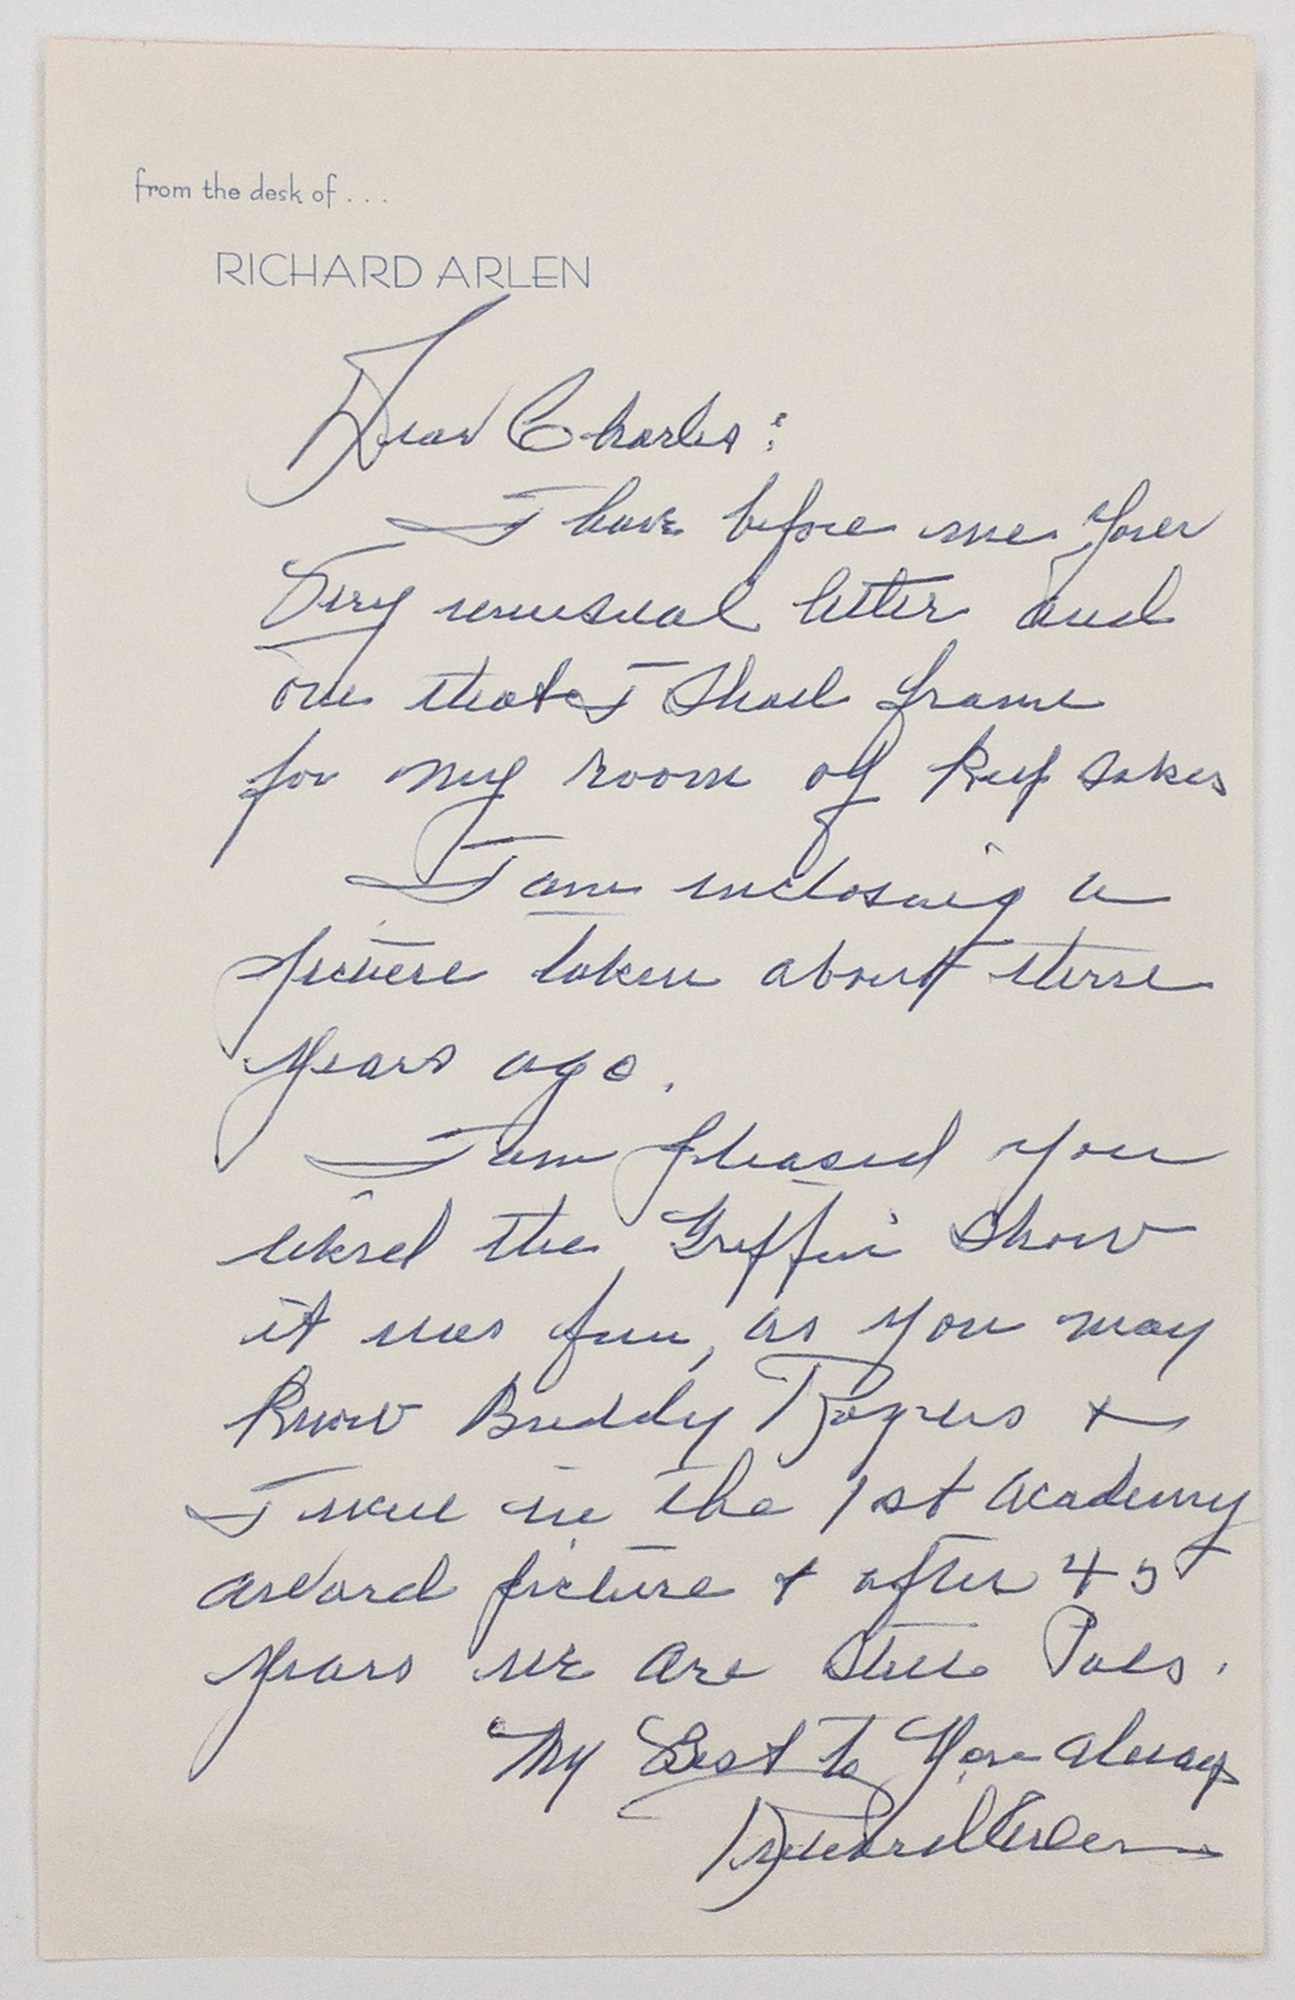 from the desk of . . .
RICHARD ARLEN
Dear Charles:
I have before me your
Very unusual letter and
one that I shall frame
for my room of keep sakes
I am inclosing a
picture taken about three
years ago.
I am pleased you
liked the Griffin Show
it was fun, as you may
know Buddy Rogers +
I were in the 1st Academy
award picture + after 45
years we are still Pals.
My Best to You always
Richard Arlen